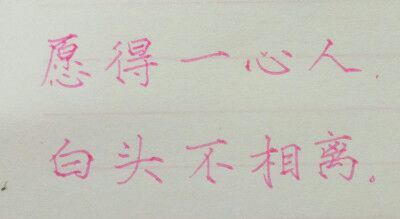 愿得一心人,
白头不相离。